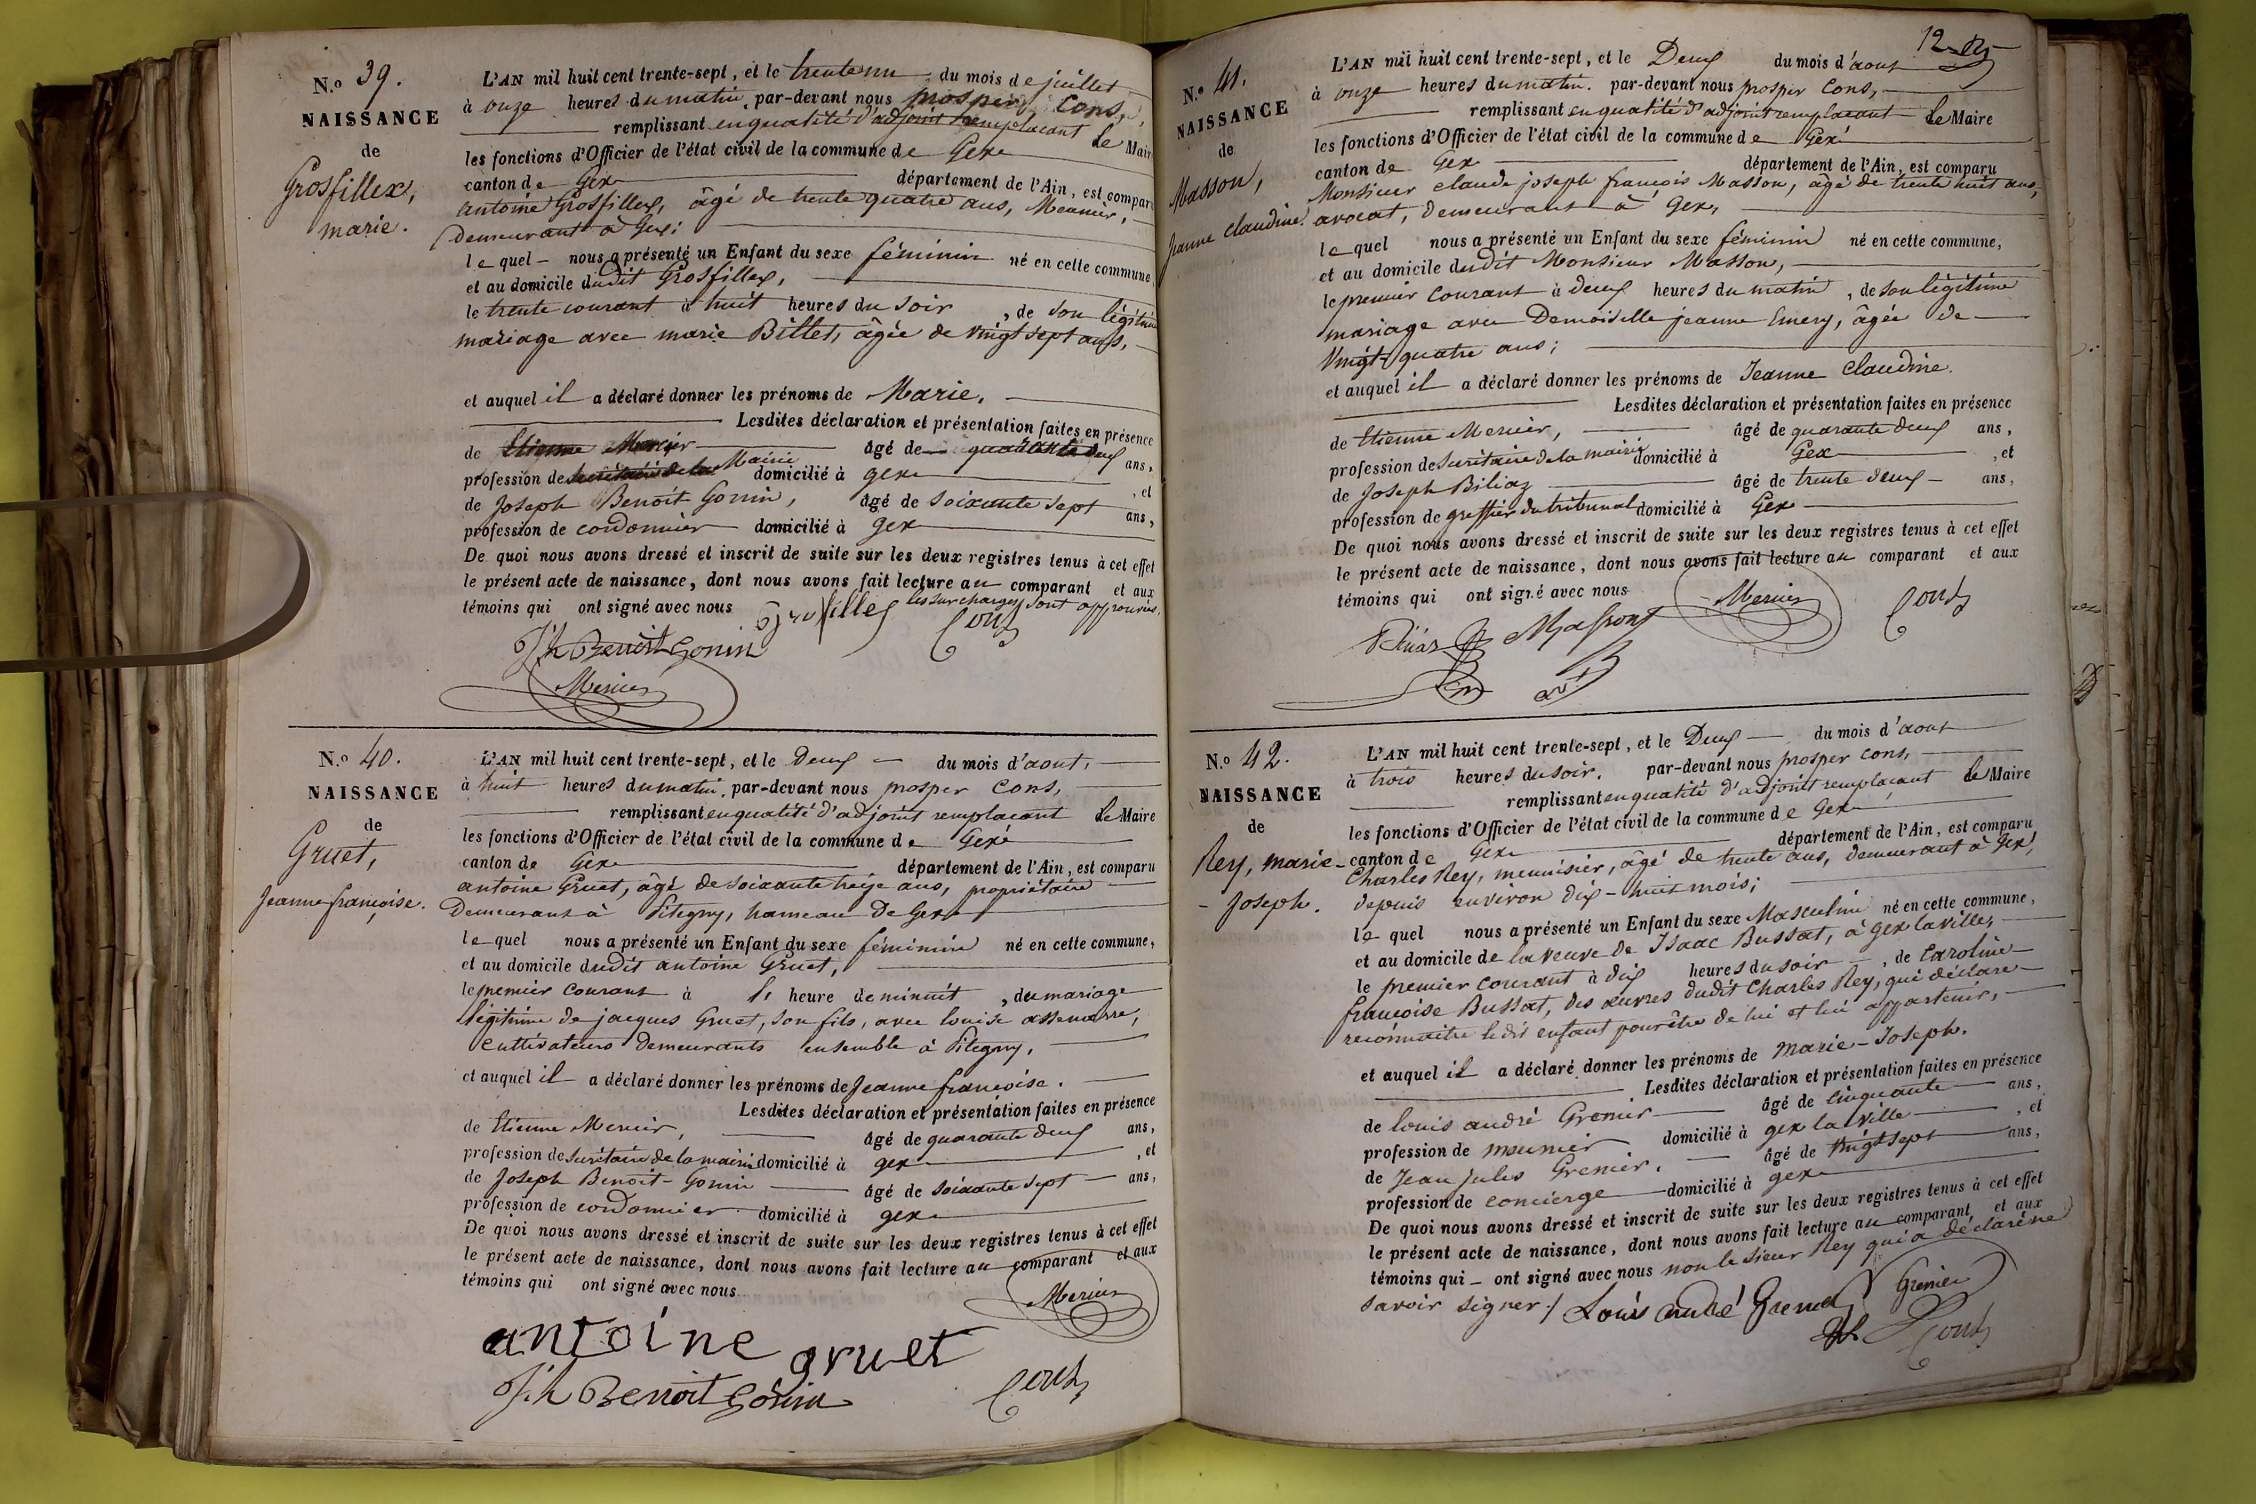 N.o 39.
NAISSANCE
de
Grosfillex,
marie.
L'AN mil huit cent trente-sept, et le trente un du mois de juillet
à onze heures du matin, par-devant nous prosper Cons,
remplissant en qualité d'adjoint remplaçant le Maire
les fonctions d'Officier de l'état civil de la commune de Gex
canton de Gex département de l'Ain, est comparu
antoine Grosfillex, âgé de trente quatre ans, Meunier,
demeurant à Gex;
le quel nous a présenté un Enfant du sexe féminin né en cette commune,
et au domicile dudit Grosfillex,
le trente courant à huit heures du soir, de son légitime
mariage avec marie Billet, âgée de vingt sept ans,
et auquel il a déclaré donner les prénoms de Marie.
Lesdites déclaration et présentation faites en présence
de Etienne Mercier âgé de quarante deux ans,
profession de secrétaire de la Mairie domicilié à gex, et
de Joseph Benoit-Gonin, âgé de soixante sept ans,
profession de cordonnier domicilié à gex
De quoi nous avons dressé et inscrit de suite sur les deux registres tenus à cet effet
le présent acte de naissance, dont nous avons fait lecture au comparant et aux
témoins qui ont signé avec nous les surcharges sont approuvées.
Grosfillex Cons
Jh Benoit Gonin
Mercier
N.o 40.
NAISSANCE
de
Gruet,
Jeanne françoise.
L'AN mil huit cent trente-sept, et le Deux du mois d'aout,
à huit heures du matin, par-devant nous prosper Cons,
remplissant en qualité d'adjoint remplaçant le Maire
les fonctions d'Officier de l'état civil de la commune de Gex
canton de Gex département de l'Ain, est comparu
antoine Gruet, âgé de soixante treize ans, propriétaire
Demeurant à Pitegny, hameau De Gex
le quel nous a présenté un Enfant du sexe féminin né en cette commune,
et au domicile dudit antoine Gruet,
le premier courant à l' heure de minuit, du mariage
légitime de jacques Gruet, son fils, avec louise
cultivateurs demeurants ensemble à Pitegny,
et auquel il a déclaré donner les prénoms de Jeanne françoise.
Lesdites déclaration et présentation faites en présence
de Etienne Mercier, âgé de quarante deux ans,
profession de secrétaire de la mairie domicilié à gex, et
de Joseph Benoit-Gonin âgé de soixante sept ans,
profession de cordonnier domicilié à gex
De quoi nous avons dressé et inscrit de suite sur les deux registres tenus à cet effet
le présent acte de naissance, dont nous avons fait lecture au comparant et aux
témoins qui ont signé avec nous
Mercier
antoine gruet
Jh Benoit Gonin Cons
12
N.o 41.
NAISSANCE
de
Masson,
Jeanne Claudine.
L'AN mil huit cent trente-sept, et le Deux du mois d'aout
à onze heures du matin. par-devant nous prosper Cons,
remplissant en qualité d'adjoint remplaçant le Maire
les fonctions d'Officier de l'état civil de la commune de Gex
canton de Gex département de l'Ain, est comparu
Monsieur claude joseph françois Masson, âgé de trente huit ans,
avocat, demeurant à Gex,
le quel nous a présenté un Enfant du sexe féminin né en cette commune,
et au domicile dudit Monsieur Masson,
le premier courant à deux heures du matin, de son légitime
mariage avec Demoiselle jeanne Emery, âgée de
Vingt-quatre ans;
et auquel il a déclaré donner les prénoms de Jeanne Claudine.
Lesdites déclaration et présentation faites en présence
de Etienne Mercier, âgé de quarante deux ans,
profession de secrétaire de la mairie domicilié à Gex, et
de Joseph Biliaz âgé de trente deux ans,
profession de greffier du tribunal domicilié à Gex
De quoi nous avons dressé et inscrit de suite sur les deux registres tenus à cet effet
le présent acte de naissance, dont nous avons fait lecture au comparant et aux
témoins qui ont signé avec nous
Mercier Cons
Masson
avt
N.o 42.
NAISSANCE
de
Rey, marie-
-Joseph.
L'AN mil huit cent trente-sept, et le Deux du mois d'aout
à trois heures du soir. par-devant nous prosper Cons,
remplissant en qualité d'adjoint remplaçant le Maire
les fonctions d'Officier de l'état civil de la commune de Gex
canton de Gex département de l'Ain, est comparu
Charles Rey, menuisier, âgé de trente ans, demeurant à Gex,
depuis environ dix-huit mois;
le quel nous a présenté un Enfant du sexe Masculin né en cette commune,
et au domicile de la veuve de Isaac Bussat, à gex la ville,
le premier courant à dix heures du soir, de Caroline
françoise Bussat, des œuvres dudit Charles Rey, qui déclare
reconnaitre ledit enfant pour être de lui et lui appartenir,
et auquel il a déclaré donner les prénoms de marie-Joseph.
Lesdites déclaration et présentation faites en présence
de louis andré Grenier âgé de cinquante ans,
profession de meunier domicilié à gex la ville, et
de Jean jules Grenier. âgé de vingt sept ans,
profession de concierge domicilié à gex
De quoi nous avons dressé et inscrit de suite sur les deux registres tenus à cet effet
le présent acte de naissance, dont nous avons fait lecture au comparant et aux
témoins qui ont signé avec nous non le sieur Rey qui a déclaré ne
savoir signer./ Louis andré Grenier Grenier
Cons